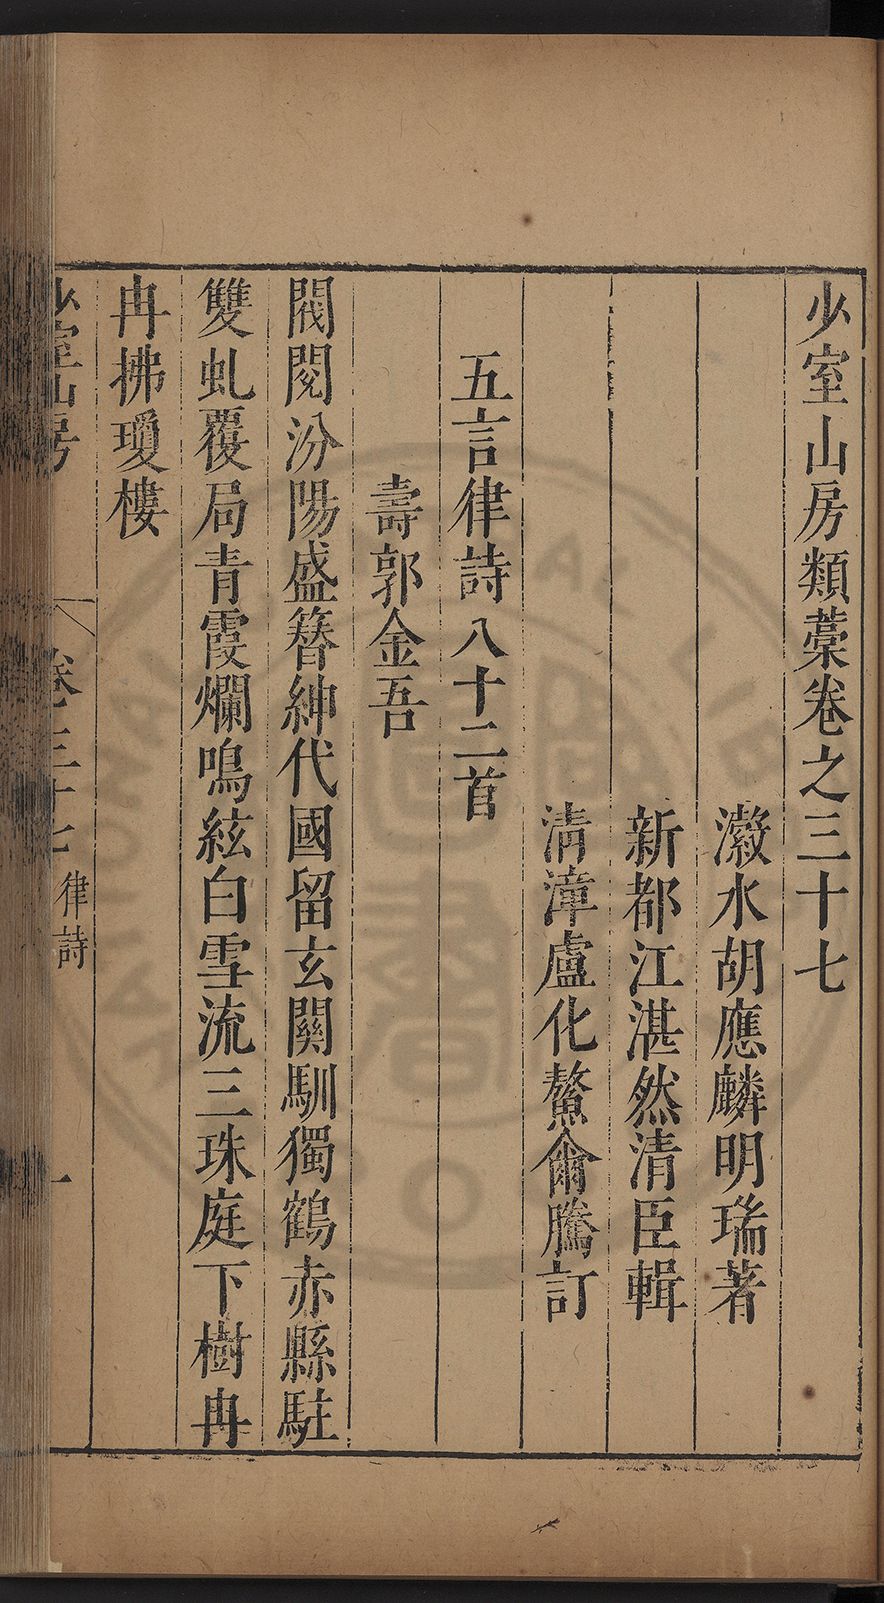 少室山房類藁卷之三十七
瀫水胡應麟明瑞著
新都江湛然清臣輯
清漳盧化鰲爾騰訂
五言律詩八十二首
壽郭金吾
閥閱汾陽盛簪紳代國留玄關馴獨鶴赤縣駐
雙虬覆局青霞爛鳴絃白雪流三珠庭下樹冉
冉拂瓊樓
少室山房 卷三十七 律詩 一